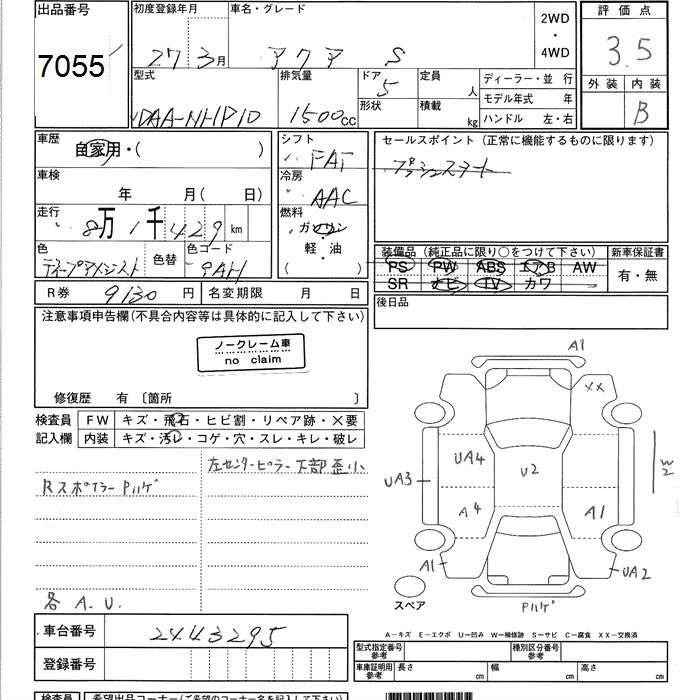 出品番号 7055
初度登録年月 27 3月
車名・グレード アクア S
2WD・4WD
評価点 3.5
外装 内装 B
型式 DAA-NHP10
排気量 1500cc
ドア 5
形状
定員 人
積載 kg
ディーラー・並行
モデル年式 年
ハンドル 左・右
車歴 自家用・( )
車検 年 月( 日)
走行 8万1千429km
色 ディープアメジスト
色替
色コード 9AH
シフト FAT
冷房 AAC
燃料 ガソリン 軽・油 ( )
セールスポイント (正常に機能するものに限ります)
プッシュスタート
装備品 (純正品に限り○をつけて下さい)
PS PW ABS エアB AW
SR ナビ TV カワ
新車保証書 有・無
R券 9130円
名変期限 月 日
後日品
注意事項申告欄(不具合内容等は具体的に記入して下さい)
ノークレーム車
no claim
修復歴 有 〔箇所 〕
検査員記入欄
FW キズ・飛石・ヒビ割・リペア跡・X要
内装 キズ・汚レ・コゲ・穴・スレ・キレ・破レ
左センターピラー下部歪小
Rスポイラー Pハゲ
各 A.U.
A1
XX
UA4
U2
UA3
W2
A4
A1
A1
UA2
Pハゲ
スペア
A-キズ E-エクボ U-凹み W-補修跡 S-サビ C-腐食 XX-交換済
車台番号 2443295
登録番号
型式指定番号 参考
種別区分番号 参考
車庫証明用 参考 長さ cm 幅 cm 高さ cm
検査員
希望出品コーナー(ご希望のコーナー名を記入下さい)